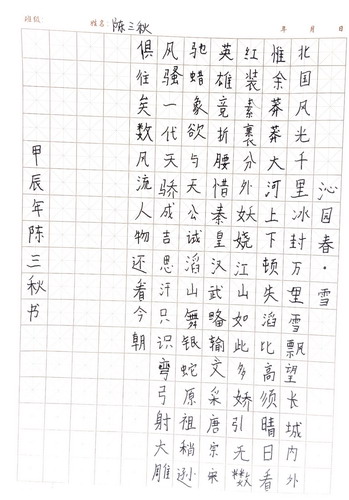 班级: 姓名: 陈三秋 年 月 日
沁园春·雪
北国风光千里冰封万里雪飘望长城内外
惟余莽莽大河上下顿失滔比高须晴日看
红装素裹分外妖娆江山如此多娇引无数
英雄竞折腰惜秦皇汉武略输文采唐宗宋
驰蜡象欲与天公诚滔山舞银蛇原祖稍逊
风骚一代天骄成吉思汗只识弯弓射大雕
俱往矣数风流人物还看今朝
甲辰年陈三秋书